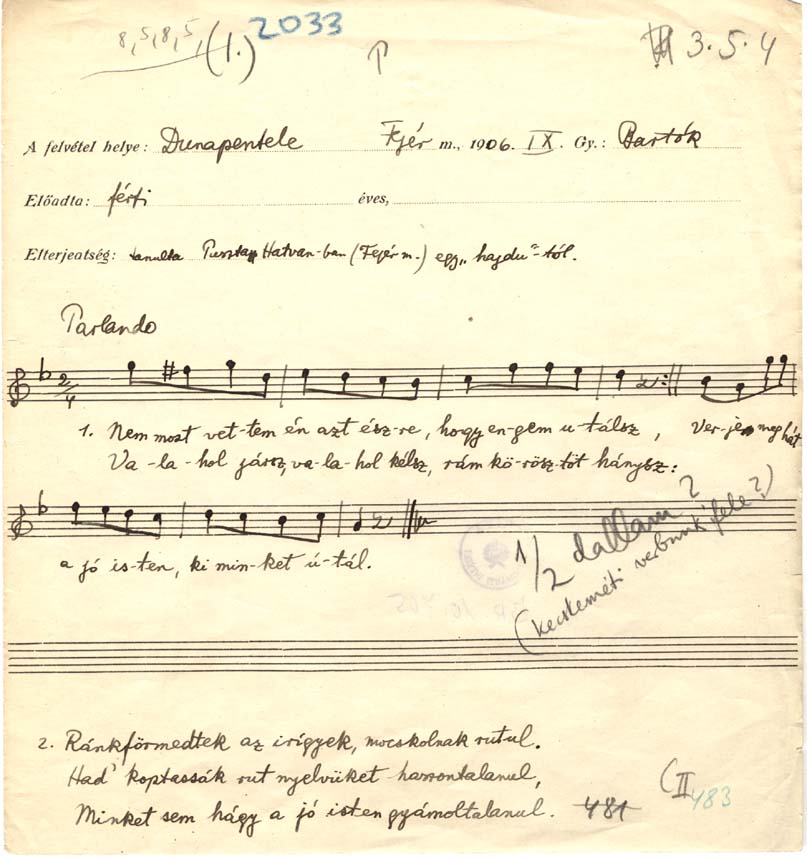 8, 5, 8, 5, (1.) 2033
3. 5. 4
A felvétel helye: Dunapentele Fejér m., 1906. IX. Gy.: Bartók
Előadta: férfi éves,
Elterjeatség: tanulta Puszta Hatvan-ban (Fejér m.) egy „hajdu"-tól.
Parlando
2/4
1. Nem most vet-tem én azt ész-re, hogy en-gem u-tálsz, Ver-je meg hát
Va-la-hol jársz, va-la-hol kélsz, rám kö-rösz-töt hánysz:
a jó is-ten, ki min-ket ú-tál.
1/2 dallam?
(kecskeméti verbunk' fele?)
2. Ránkförmedtek az irígyek, mocskolnak rutul.
Had' koptassák rut nyelvüket haszontalanul,
Minket sem hágy a jó isten gyámoltalanul. 481
CII 483